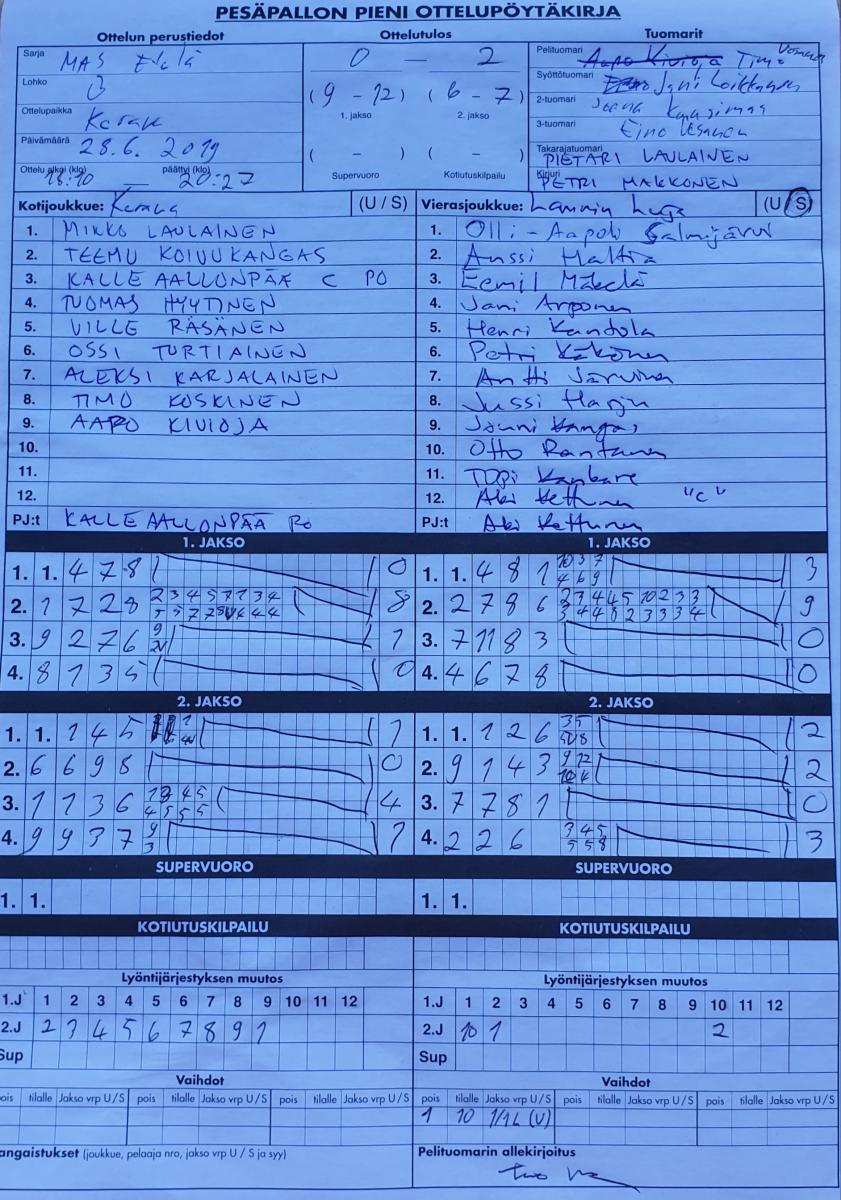 PESÄPALLON PIENI OTTELUPÖYTÄKIRJA
Ottelun perustiedot
Sarja MAS Etelä
Lohko 3
Ottelupaikka Kerava
Päivämäärä 28.6. 2019
Ottelu alkoi (klo) 18:10 — päättyi (klo) 20:27
Ottelutulos
0 — 2
(9 - 12) (6 - 7)
1. jakso 2. jakso
( - ) ( - )
Supervuoro Kotiutuskilpailu
Tuomarit
Pelituomari Aapo Kivioja Timo
Syöttötuomari Jani Loikkanen
2-tuomari
3-tuomari Eino
Takarajatuomari PIETARI LAULAINEN
Kirjuri PETRI MAKKONEN
Kotijoukkue: Kerava (U / S)
1. MIKKO LAULAINEN
2. TEEMU KOIVUKANGAS
3. KALLE AALLONPÄÄ C PO
4. TUOMAS HYYTINEN
5. VILLE RÄSÄNEN
6. OSSI TURTIAINEN
7. ALEKSI KARJALAINEN
8. TIMO KOSKINEN
9. AAPO KIVIOJA
10.
11.
12.
PJ:t KALLE AALLONPÄÄ PO
Vierasjoukkue: Lammin (U / S)
1. Olli-Aapo Salmijärvi
2. Anssi Haltia
3. Eemil Mäkelä
4. Jani Arponen
5. Henri Kandola
6. Petri Käkönen
7. Antti Järvinen
8. Jussi Harju
9. Jouni Kangas
10. Otto Rantanen
11. Topi Kankare
12. Aki Kettunen "C"
PJ:t Aki Kettunen
1. JAKSO
1. 1. 4 7 8 0
2. 1 7 2 8 8
3. 9 2 7 6 1
4. 8 1 3 5 0
1. JAKSO
1. 1. 4 8 1 10 3 7 4 6 9 3
2. 2 7 8 6 9
3. 7 11 8 3 0
4. 4 6 7 8 0
2. JAKSO
1. 1. 1 4 5 1
2. 6 6 9 8 0
3. 1 1 3 6 4
4. 9 9 3 7 9 3 1
2. JAKSO
1. 1. 1 2 6 2
2. 9 1 4 3 9 12 10 4 2
3. 7 7 8 1 0
4. 2 2 6 3 4 5 5 5 8 3
SUPERVUORO
1. 1.
SUPERVUORO
1. 1.
KOTIUTUSKILPAILU
KOTIUTUSKILPAILU
Lyöntijärjestyksen muutos
1.J 1 2 3 4 5 6 7 8 9 10 11 12
2.J 2 3 4 5 6 7 8 9 1
Sup
Lyöntijärjestyksen muutos
1.J 1 2 3 4 5 6 7 8 9 10 11 12
2.J 10 1 2
Sup
Vaihdot
pois tilalle Jakso vrp U/S pois tilalle Jakso vrp U/S pois tilalle Jakso vrp U/S
Vaihdot
pois tilalle Jakso vrp U/S pois tilalle Jakso vrp U/S pois tilalle Jakso vrp U/S
1 10 1/1L (U)
angaistukset (joukkue, pelaaja nro, jakso vrp U / S ja syy)
Pelituomarin allekirjoitus